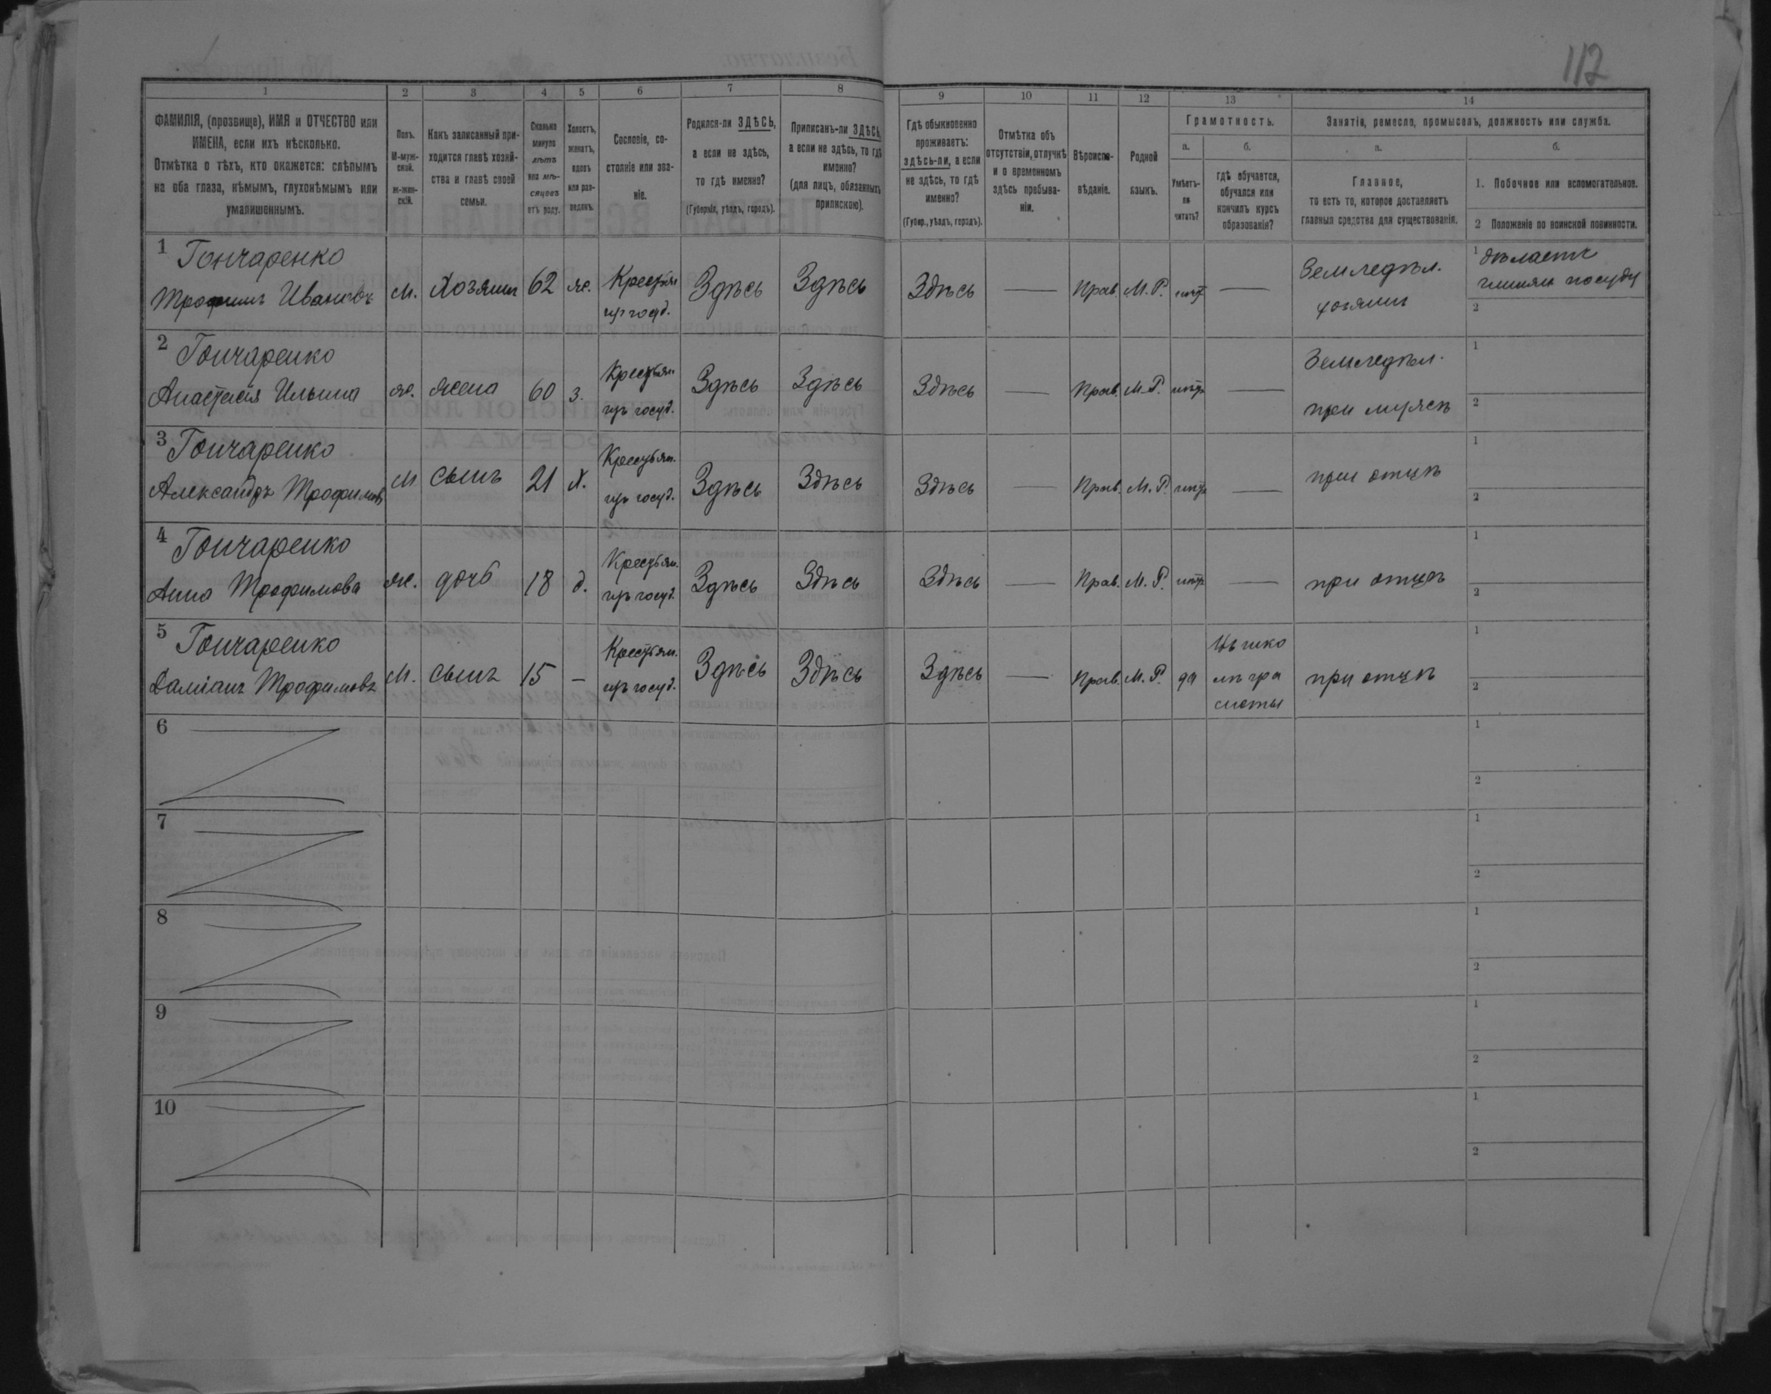 112
1
2
3
4
5
6
7
8
9
10
11
12
13
14
ФАМИЛІЯ, (прозвище), ИМЯ и ОТЧЕСТВО или
ИМЕНА, если ихъ нѣсколько.
Отмѣтка о тѣхъ, кто окажется: слѣпымъ
на оба глаза, нѣмымъ, глухонѣмымъ или
умалишеннымъ.
Полъ.
М-муж-
ской.
ж-жен-
скій.
Какъ записанный при-
ходится главѣ хозяй-
ства и главѣ своей
семьи.
Сколько
минуло
лѣтъ
или мѣ-
сяцевъ
отъ роду.
Холостъ,
женатъ,
вдовъ
или раз-
веденъ.
Сословіе, со-
стояніе или зва-
ніе.
Родился-ли ЗДѢСЬ,
а если не здѣсь,
то гдѣ именно?
(Губернія, уѣздъ, городъ).
Приписанъ-ли ЗДѢСЬ,
а если не здѣсь, то гдѣ
именно?
(для лицъ, обязанныхъ
припискою).
Гдѣ обыкновенно
проживаетъ:
здѣсь-ли, а если
не здѣсь, то гдѣ
именно?
(Губер., уѣздъ, городъ).
Отмѣтка объ
отсутствіи, отлучкѣ
и о временномъ
здѣсь пребыва-
ніи.
Вѣроиспо-
вѣданіе.
Родной
языкъ.
Грамотность.
а.
Умѣетъ-
ли
читать?
б.
гдѣ обучается,
обучался или
кончилъ курсъ
образованія?
Занятіе, ремесло, промыселъ, должность или служба.
а.
Главное,
то есть то, которое доставляетъ
главныя средства для существованія.
б.
1. Побочное или вспомогательное.
2 Положеніе по воинской повинности.
1 Гончаренко
Трофимъ Ивановъ
м. хозяинъ 62 ж. Крестьян. изъ госуд. Здѣсь Здѣсь Здѣсь — Прав. М.Р. нѣтъ — Земледѣл. хозяинъ
1 дѣлаетъ
глинян посуду
2
2 Гончаренко
Анастасія Ильина
ж. жена 60 з. Крестьян. изъ госуд. Здѣсь Здѣсь Здѣсь — Прав. М.Р. нѣтъ — Земледѣл. при мужѣ
1
2
3 Гончаренко
Александръ Трофимовъ
м сынъ 21 х. Крестьян. изъ госуд. Здѣсь Здѣсь Здѣсь — Прав. М.Р. нѣтъ — при отцѣ
1
2
4 Гончаренко
Анна Трофимова
ж. дочь 18 д. Крестьян. изъ госуд. Здѣсь Здѣсь Здѣсь — Прав. М.Р. нѣтъ — при отцѣ
1
2
5 Гончаренко
Даміанъ Трофимовъ
м. сынъ 15 — Крестьян. изъ госуд. Здѣсь Здѣсь Здѣсь — Прав. М.Р. да Въ шко лѣ гра моты при отцѣ
1
2
6
1
2
7
1
2
8
1
2
9
1
2
10
1
2